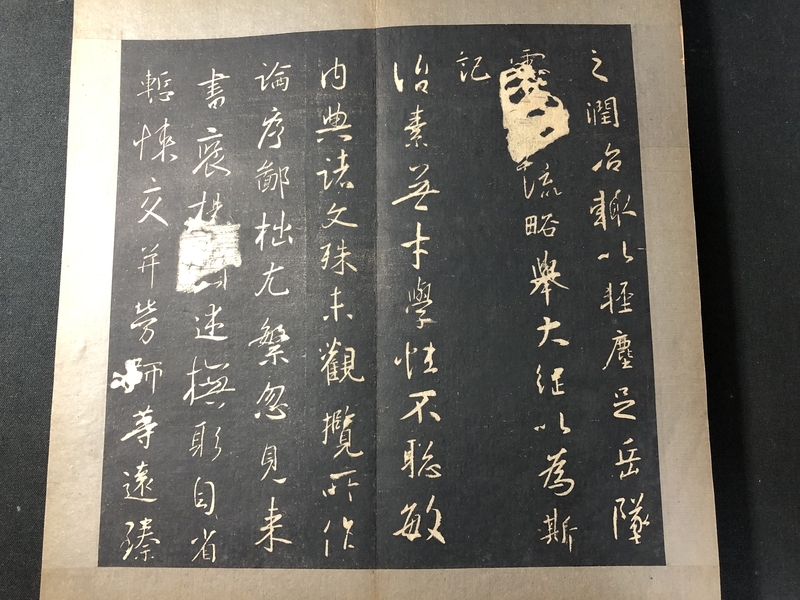 之潤治輒以輕塵足岳墜
流略舉大綱以為斯
記
治素無才學性不聰敏
內典諸文殊未觀攬所作
論序鄙拙尤繁忽見來
書褒述撫躬自省
慙悚交并勞師等遠臻